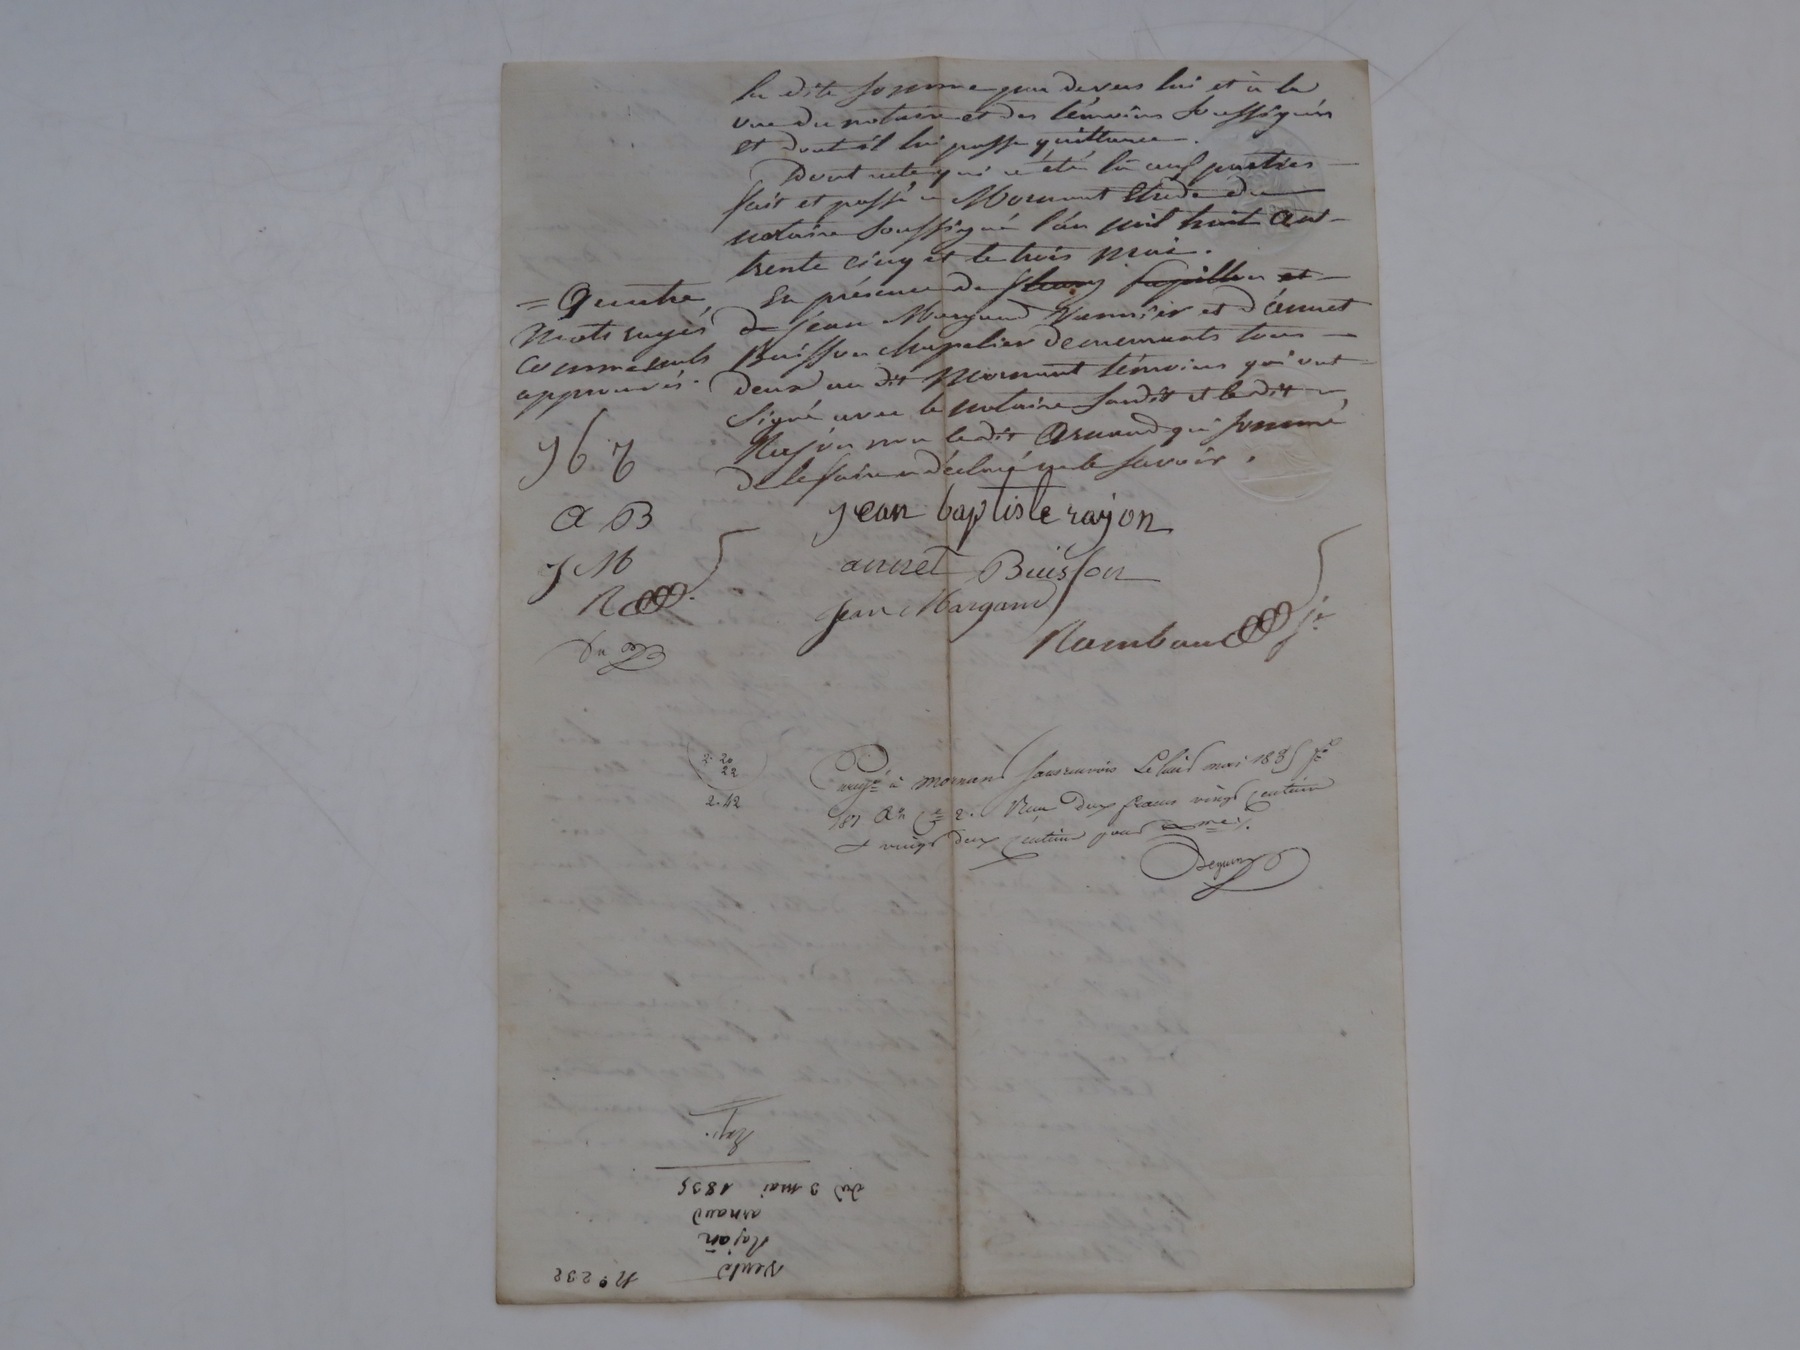 la dite somme par devers lui et à la
vue du notaire et des témoins soussignés
et dont il lui passe quittance.
Dont acte qui a été lu aux parties
fait et passé à Mornant Etude du
notaire soussigné l'an mil huit cent
trente cinq et le trois mai.
En présence de fleury papillon et
de jean Margand et d'annet
Buisson chapelier demeurants tous
deux au dit Mornant témoins qui ont
signé avec le notaire susdit et ledit
Rajon non ledit Arnaud qui sommé
de le faire a déclaré ne le savoir.
= Quatre
mots rayés
comme nuls
approuvés.
j b r
a B
j M
R
jean baptiste rajon
annet Buisson
jean Margand
Rambaud je
2.20
22
2.42
à Mornant Le huit mai 1835 fo
187 Ro Ce 2. Reçu deux francs vingt centimes
et vingt deux centimes pour
N° 232
vente
Rajon
arnaud
du 3 mai 1835